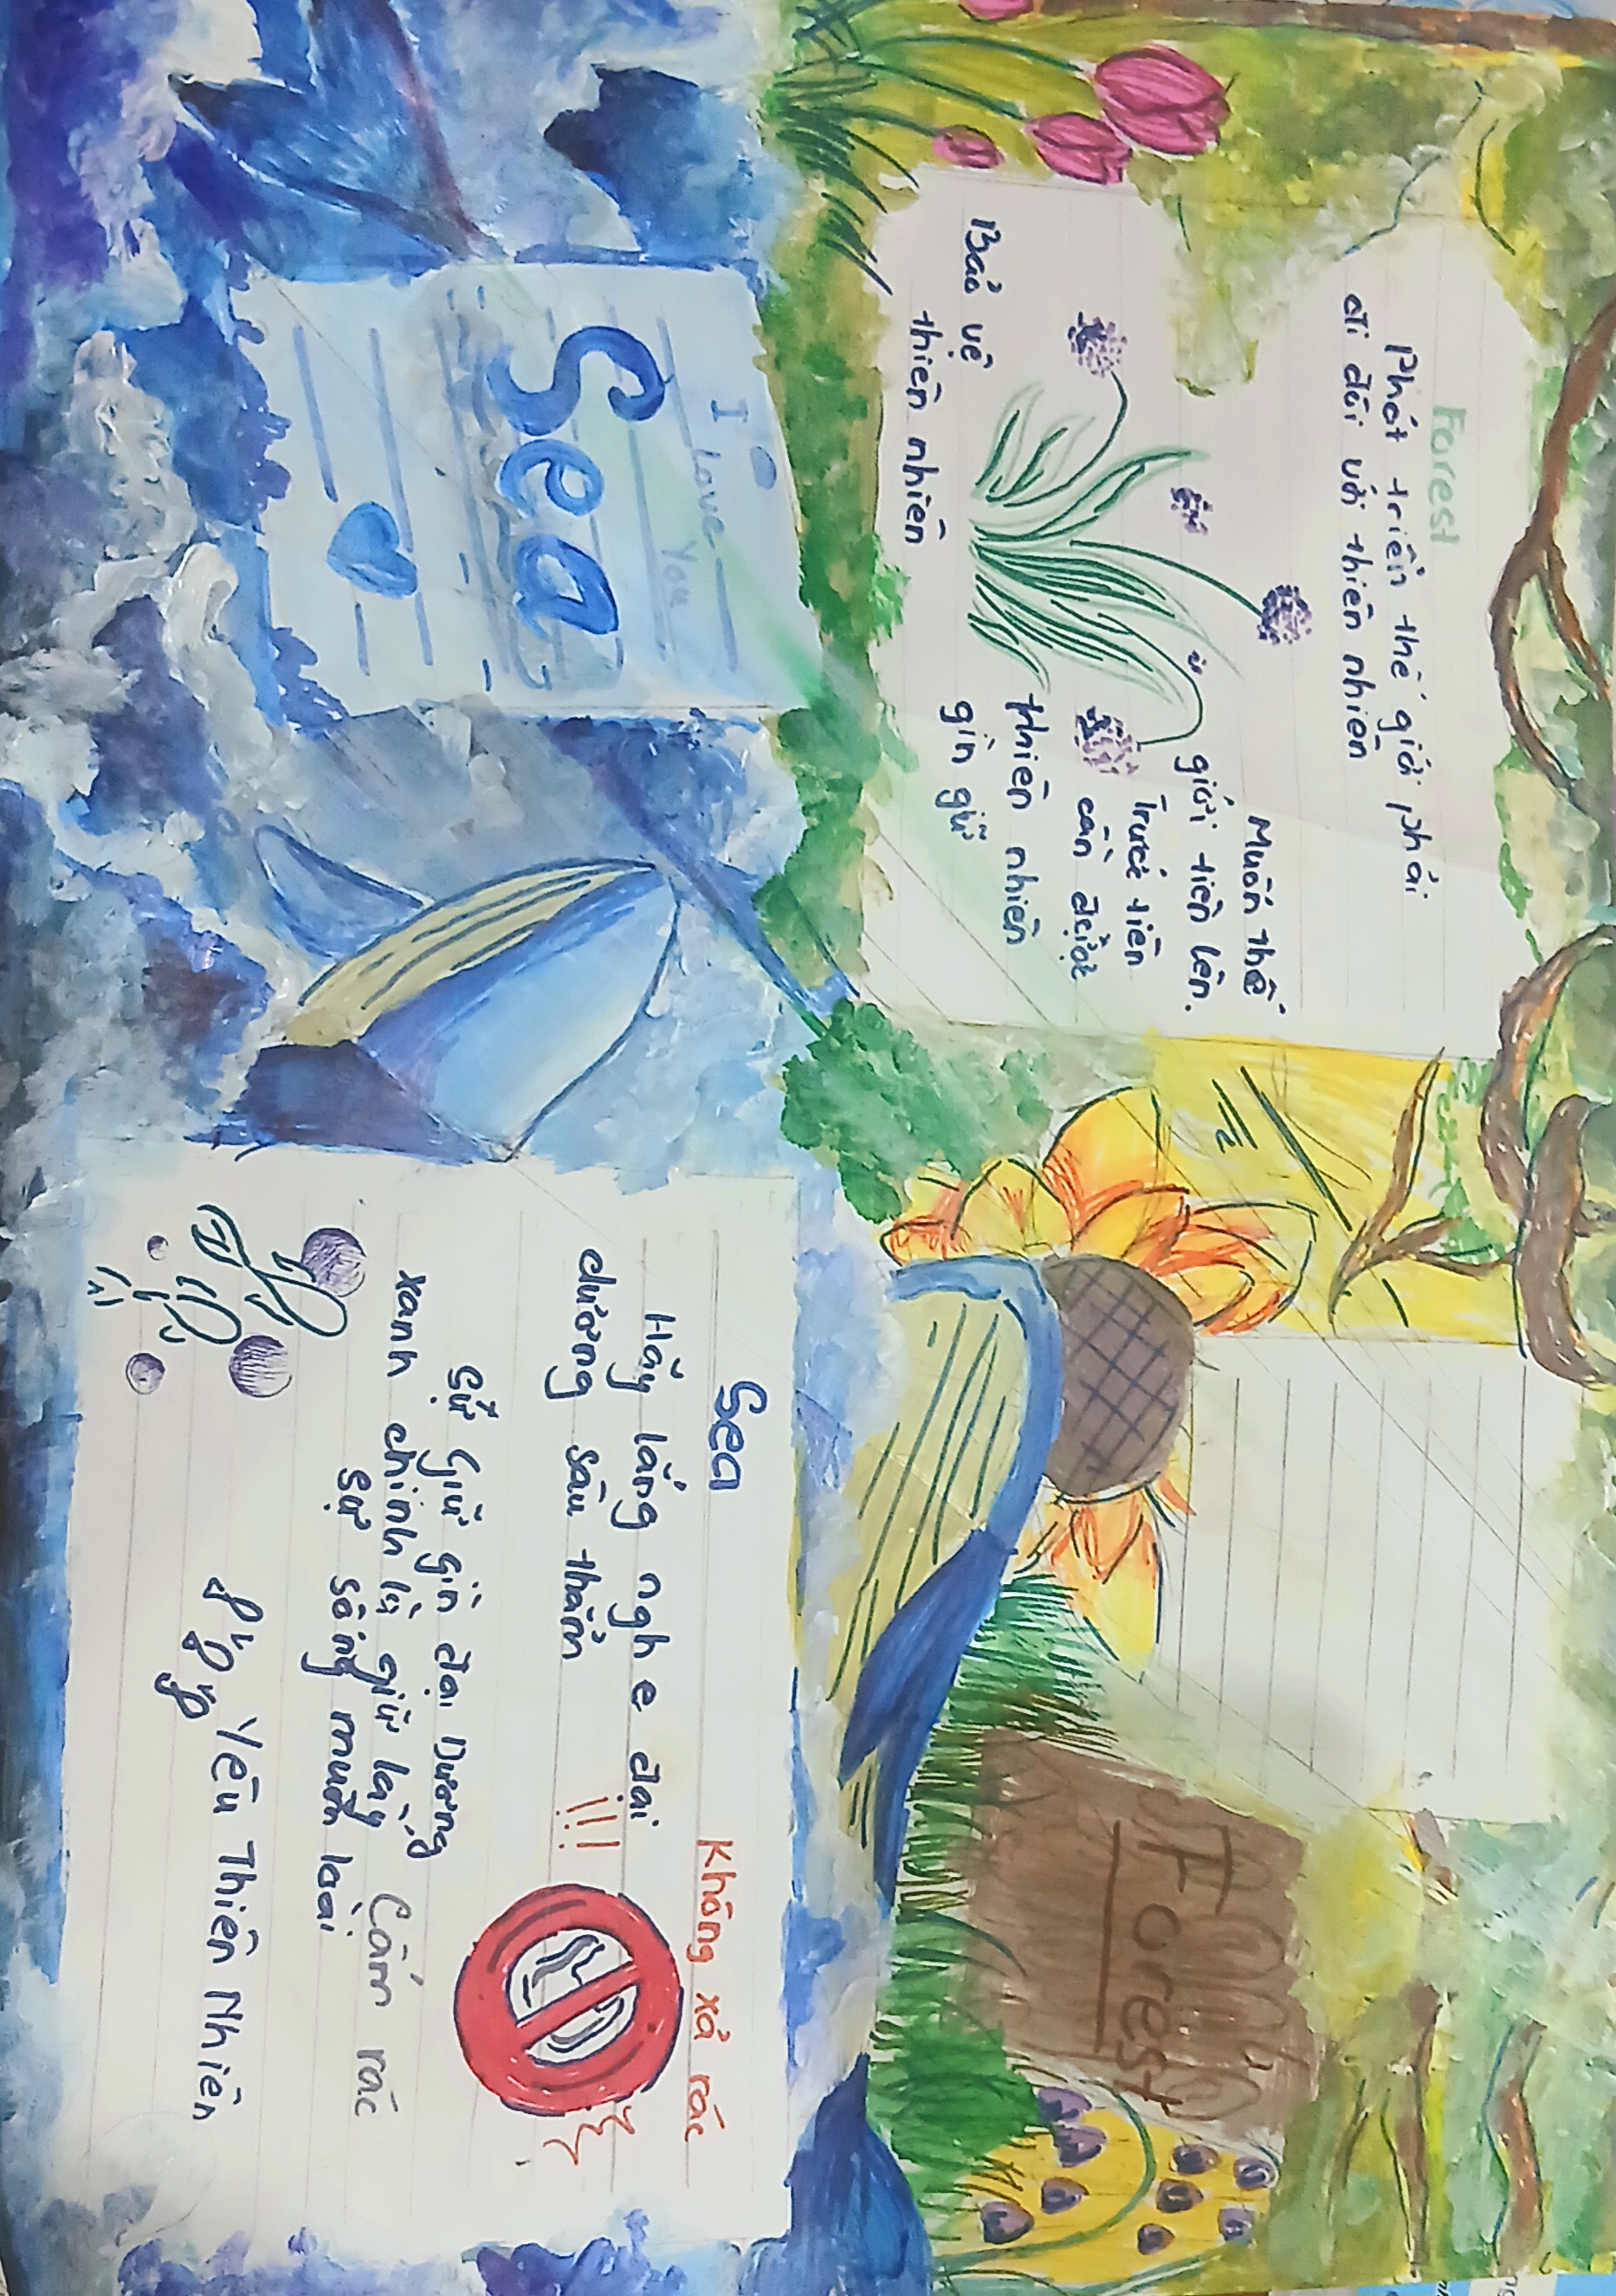 Forest
Phát triển thế giới phải
đi đôi với thiên nhiên
Muốn thế
giới tiên lên.
Trước tiên
cần được
thiên nhiên
gìn giữ
Bảo vệ
thiên nhiên
Forest
I Love You
Sea
Sea
Không xả rác
Hãy lắng nghe đại
dương sâu thẳm !!!
Sự giữ gìn đại Dương
xanh chính là giữ lấy
sự sống muôn loài
Cấm rác
Yêu Thiên Nhiên